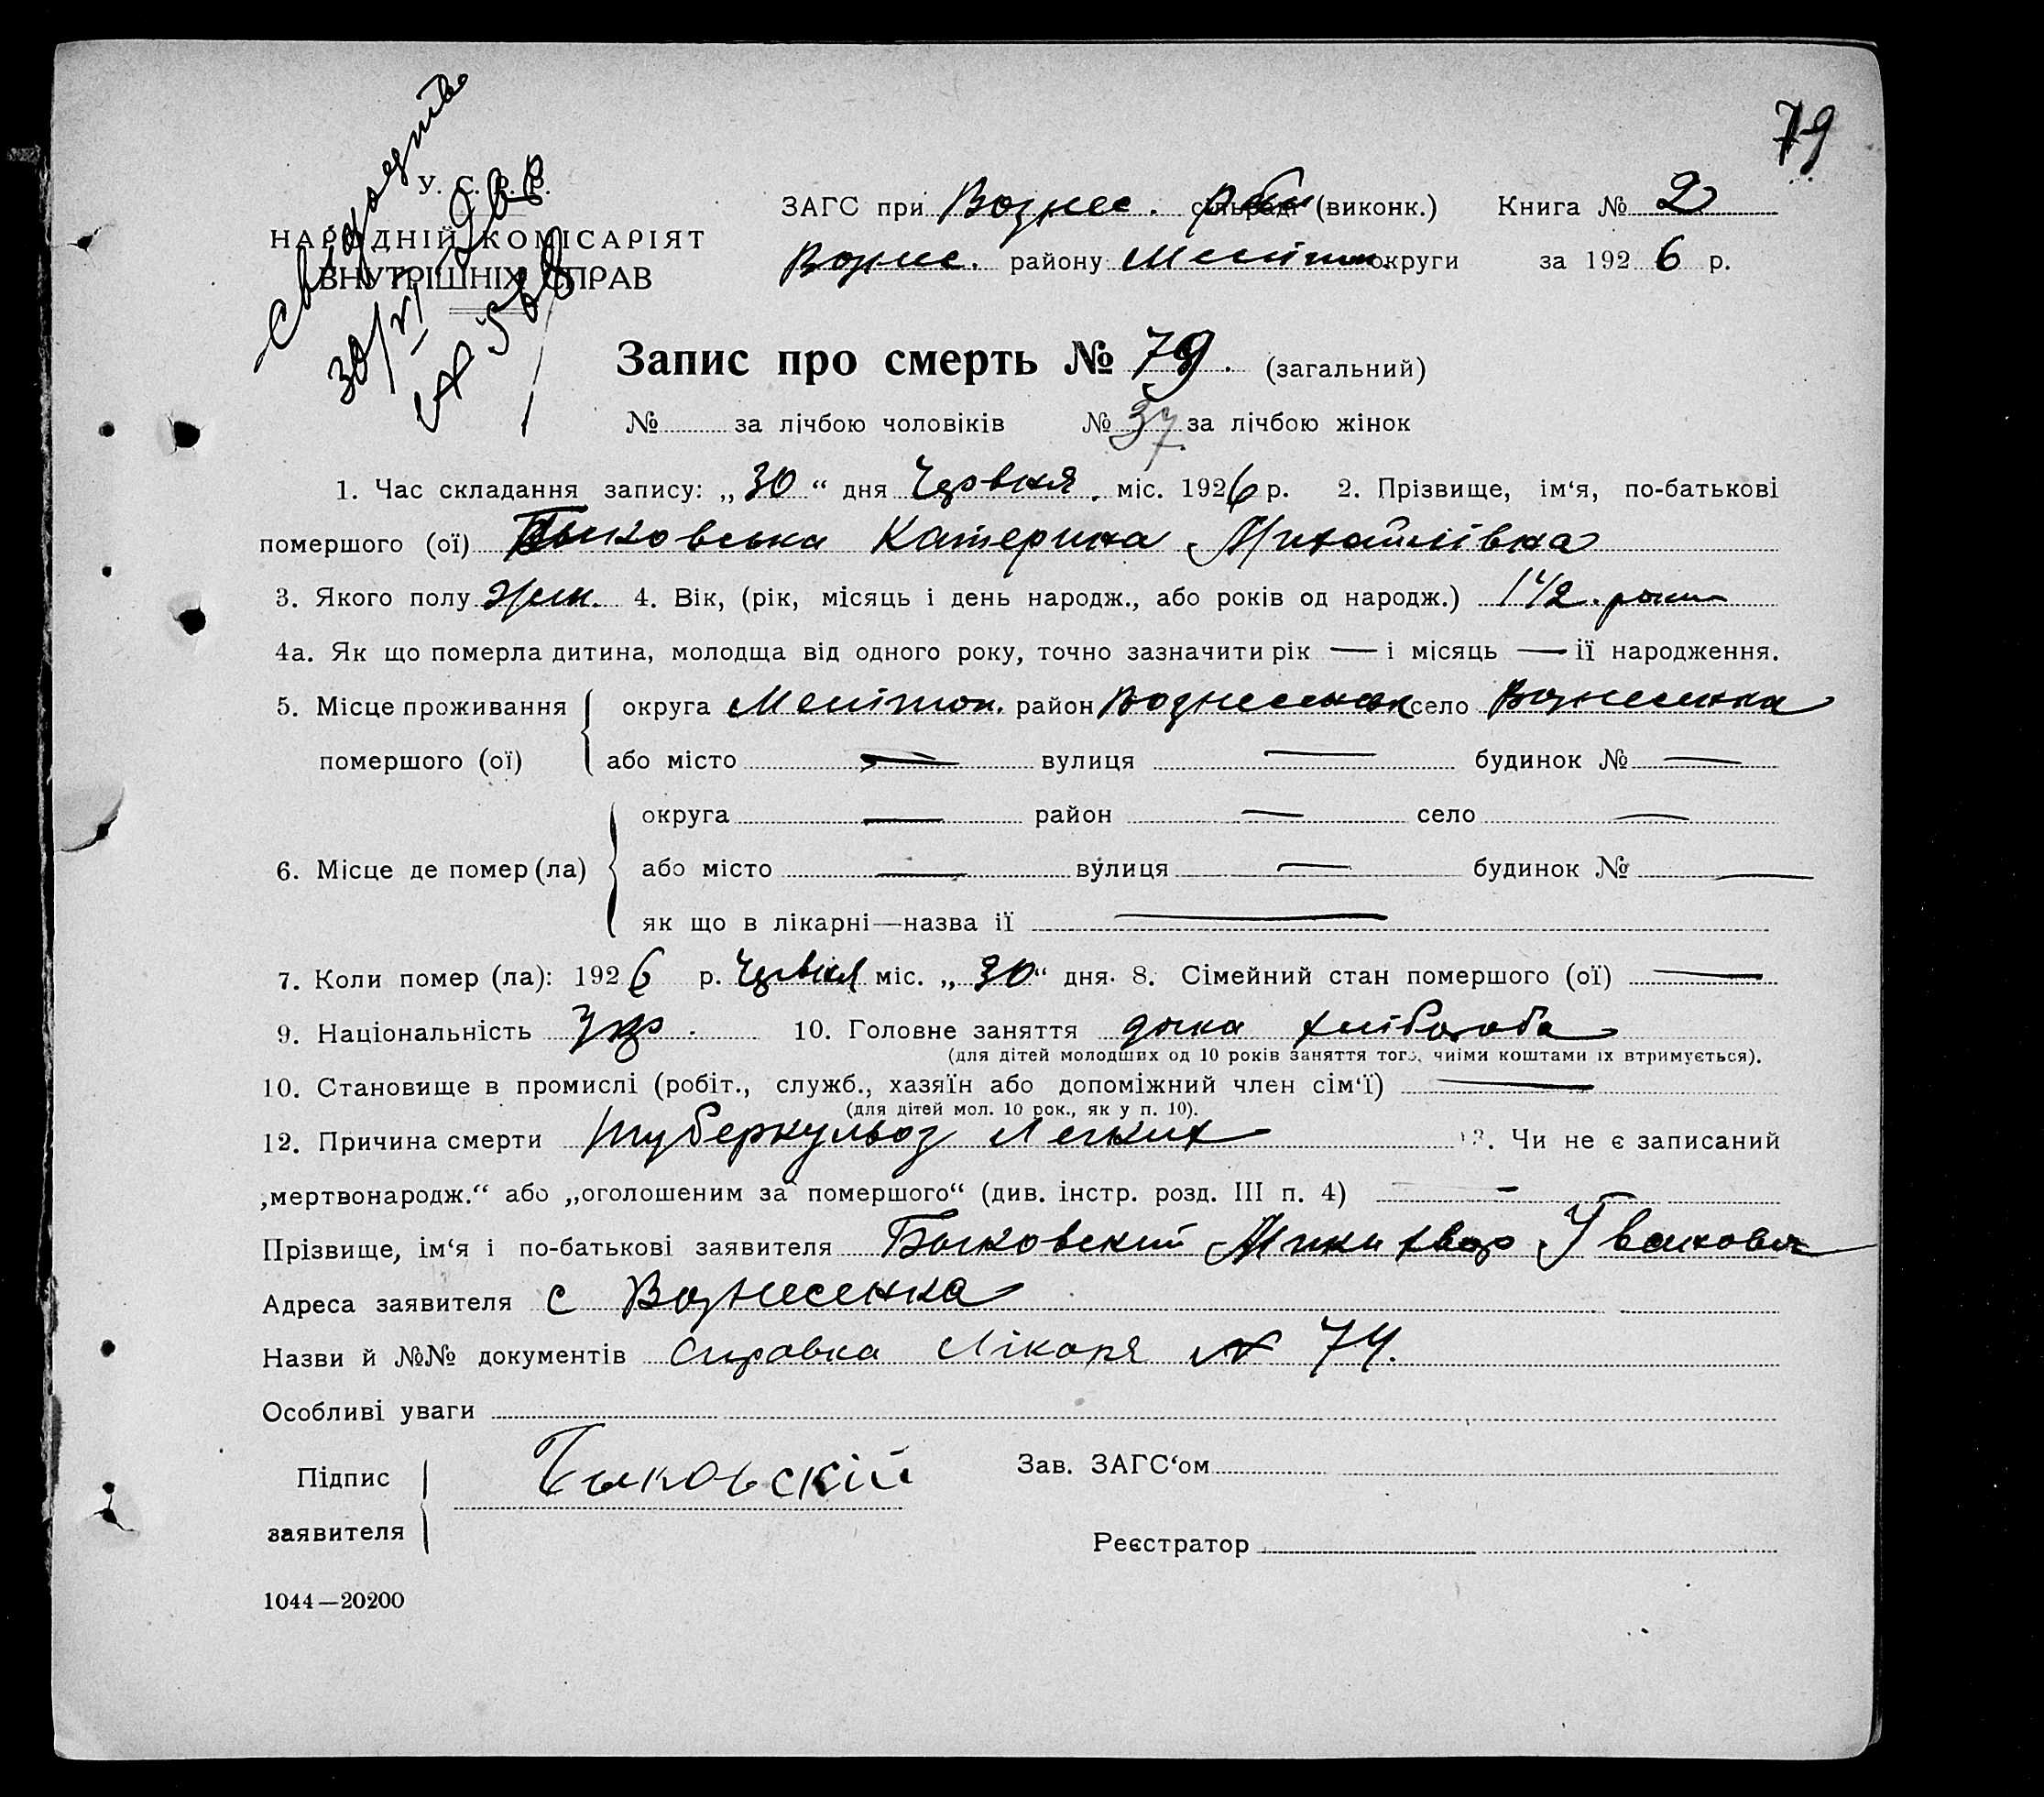 79
Свідоцтво
30/VI 1926 р
№ 568
У. С. Р. Р.
НАРОДНІЙ КОМІСАРІЯТ
ВНУТРІШНІХ СПРАВ
ЗАГС при Вознес. сільраді (виконк.) Книга № 2
Вознес. району Мелітоп. округи за 1926 р.
Запис про смерть № 79. (загальний)
№ за лічбою чоловіків № 37 за лічбою жінок
1. Час складання запису: „30“ дня Червня. міс. 1926 р. 2. Прізвище, ім‘я, по-батькові
помершого (ої) Быковська Катерина Михайлівна
3. Якого полу жен. 4. Вік, (рік, місяць і день народж., або років од народж.) 1 1/2. роки
4а. Як що померла дитина, молодща від одного року, точно зазначити рік — і місяць — її народження.
5. Місце проживання округа Мелітоп. район Вознесенськ село Вознесенка
помершого (ої) або місто — вулиця — будинок № —
округа — район — село —
6. Місце де помер (ла) або місто — вулиця — будинок № —
як що в лікарні—назва її —
7. Коли помер (ла): 1926 р. Червня міс. „30“ дня. 8. Сімейний стан помершого (ої) —
9. Національність Укр. 10. Головне заняття дочка хлібороба
(для дітей молодших од 10 років заняття того, чиїми коштами їх втримується).
10. Становище в промислі (робіт., служб., хазяїн або допоміжний член сім‘ї) —
(для дітей мол. 10 рок., як у п. 10).
12. Причина смерти туберкульоз Легких 13. Чи не є записаний
„мертвонародж.“ або „оголошеним за помершого“ (див. інстр. розд. III п. 4) —
Прізвище, ім‘я і по-батькові заявителя Быковский Никифор Іванович
Адреса заявителя с Вознесенка
Назви й №№ документів Справка Лікаря № 74.
Особливі уваги
Підпис Быковскій Зав. ЗАГС‘ом
заявителя Реєстратор
1044—20200